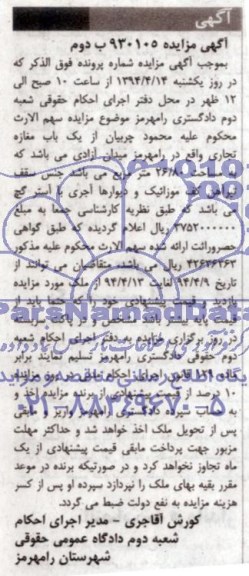 آگهی
آگهی مزایده ۹۳۰۱۰۵ ب دوم
بموجب آگهی مزایده شماره پرونده فوق الذکر که
در روز یکشنبه ۱۳۹۴/۴/۱۴ از ساعت ۱۰ صبح الی
۱۲ ظهر در محل دفتر اجرای احکام حقوقی شعبه
دوم دادگستری رامهرمز موضوع مزایده سهم الارث
محکوم علیه محمود چربیان از یک باب مغازه
تجاری واقع در رامهرمز میدان آزادی می باشد که
مساحت ۲۶/۸۰ متر مربع می باشد جنس سقف
کف موزائیک و دیوارها آجری با آستر گچ
می باشد که طبق نظریه کارشناسی جمعا به مبلغ
۳۷۵۲۰۰۰۰۰۰ ریال اعلام گردیده که طبق گواهی
حصروراثت ارائه شده سهم الارث محکوم علیه مذکور
۴۲۶۳۶۳۶۳ ریال می باشد، متقاضیان می توانند از
تاریخ ۹۴/۴/۹ لغایت ۹۴/۴/۱۳ از ملک مورد مزایده
بازدید و قیمت پیشنهادی خود را که حتما باید از
پایه بیشتر باشد مشخص و در پاکت سربسته
در روز برگزاری مزایده به دفتر اجرای احکام شعبه
دوم حقوقی دادگستری رامهرمز تسلیم نمایند برابر
ماده ۱۲۹ قانون اجرای احکام مدنی در روز مزایده
۱۰ درصد از قیمت پیشنهادی از برنده مزایده اخذ و
به حساب سپرده دادگستری رامهرمز واریز و مابقی
پس از تحویل ملک اخذ خواهد شد و حداکثر مهلت
مزبور جهت پرداخت مابقی قیمت پیشنهادی از یک
ماه تجاوز نخواهد کرد و در صورتیکه برنده در موعد
مقرر بقیه بهای ملک را نپردازد سپرده او پس از کسر
هزینه مزایده به نفع دولت ضبط می گردد.
کورش آقاجری - مدیر اجرای احکام
شعبه دوم دادگاه عمومی حقوقی
شهرستان رامهرمز
ParsNamadData
پایگاه اطلاع رسانی مناقصه و مزایده
۰۲۱-۸۸۳۴۹۶۷۰-۵